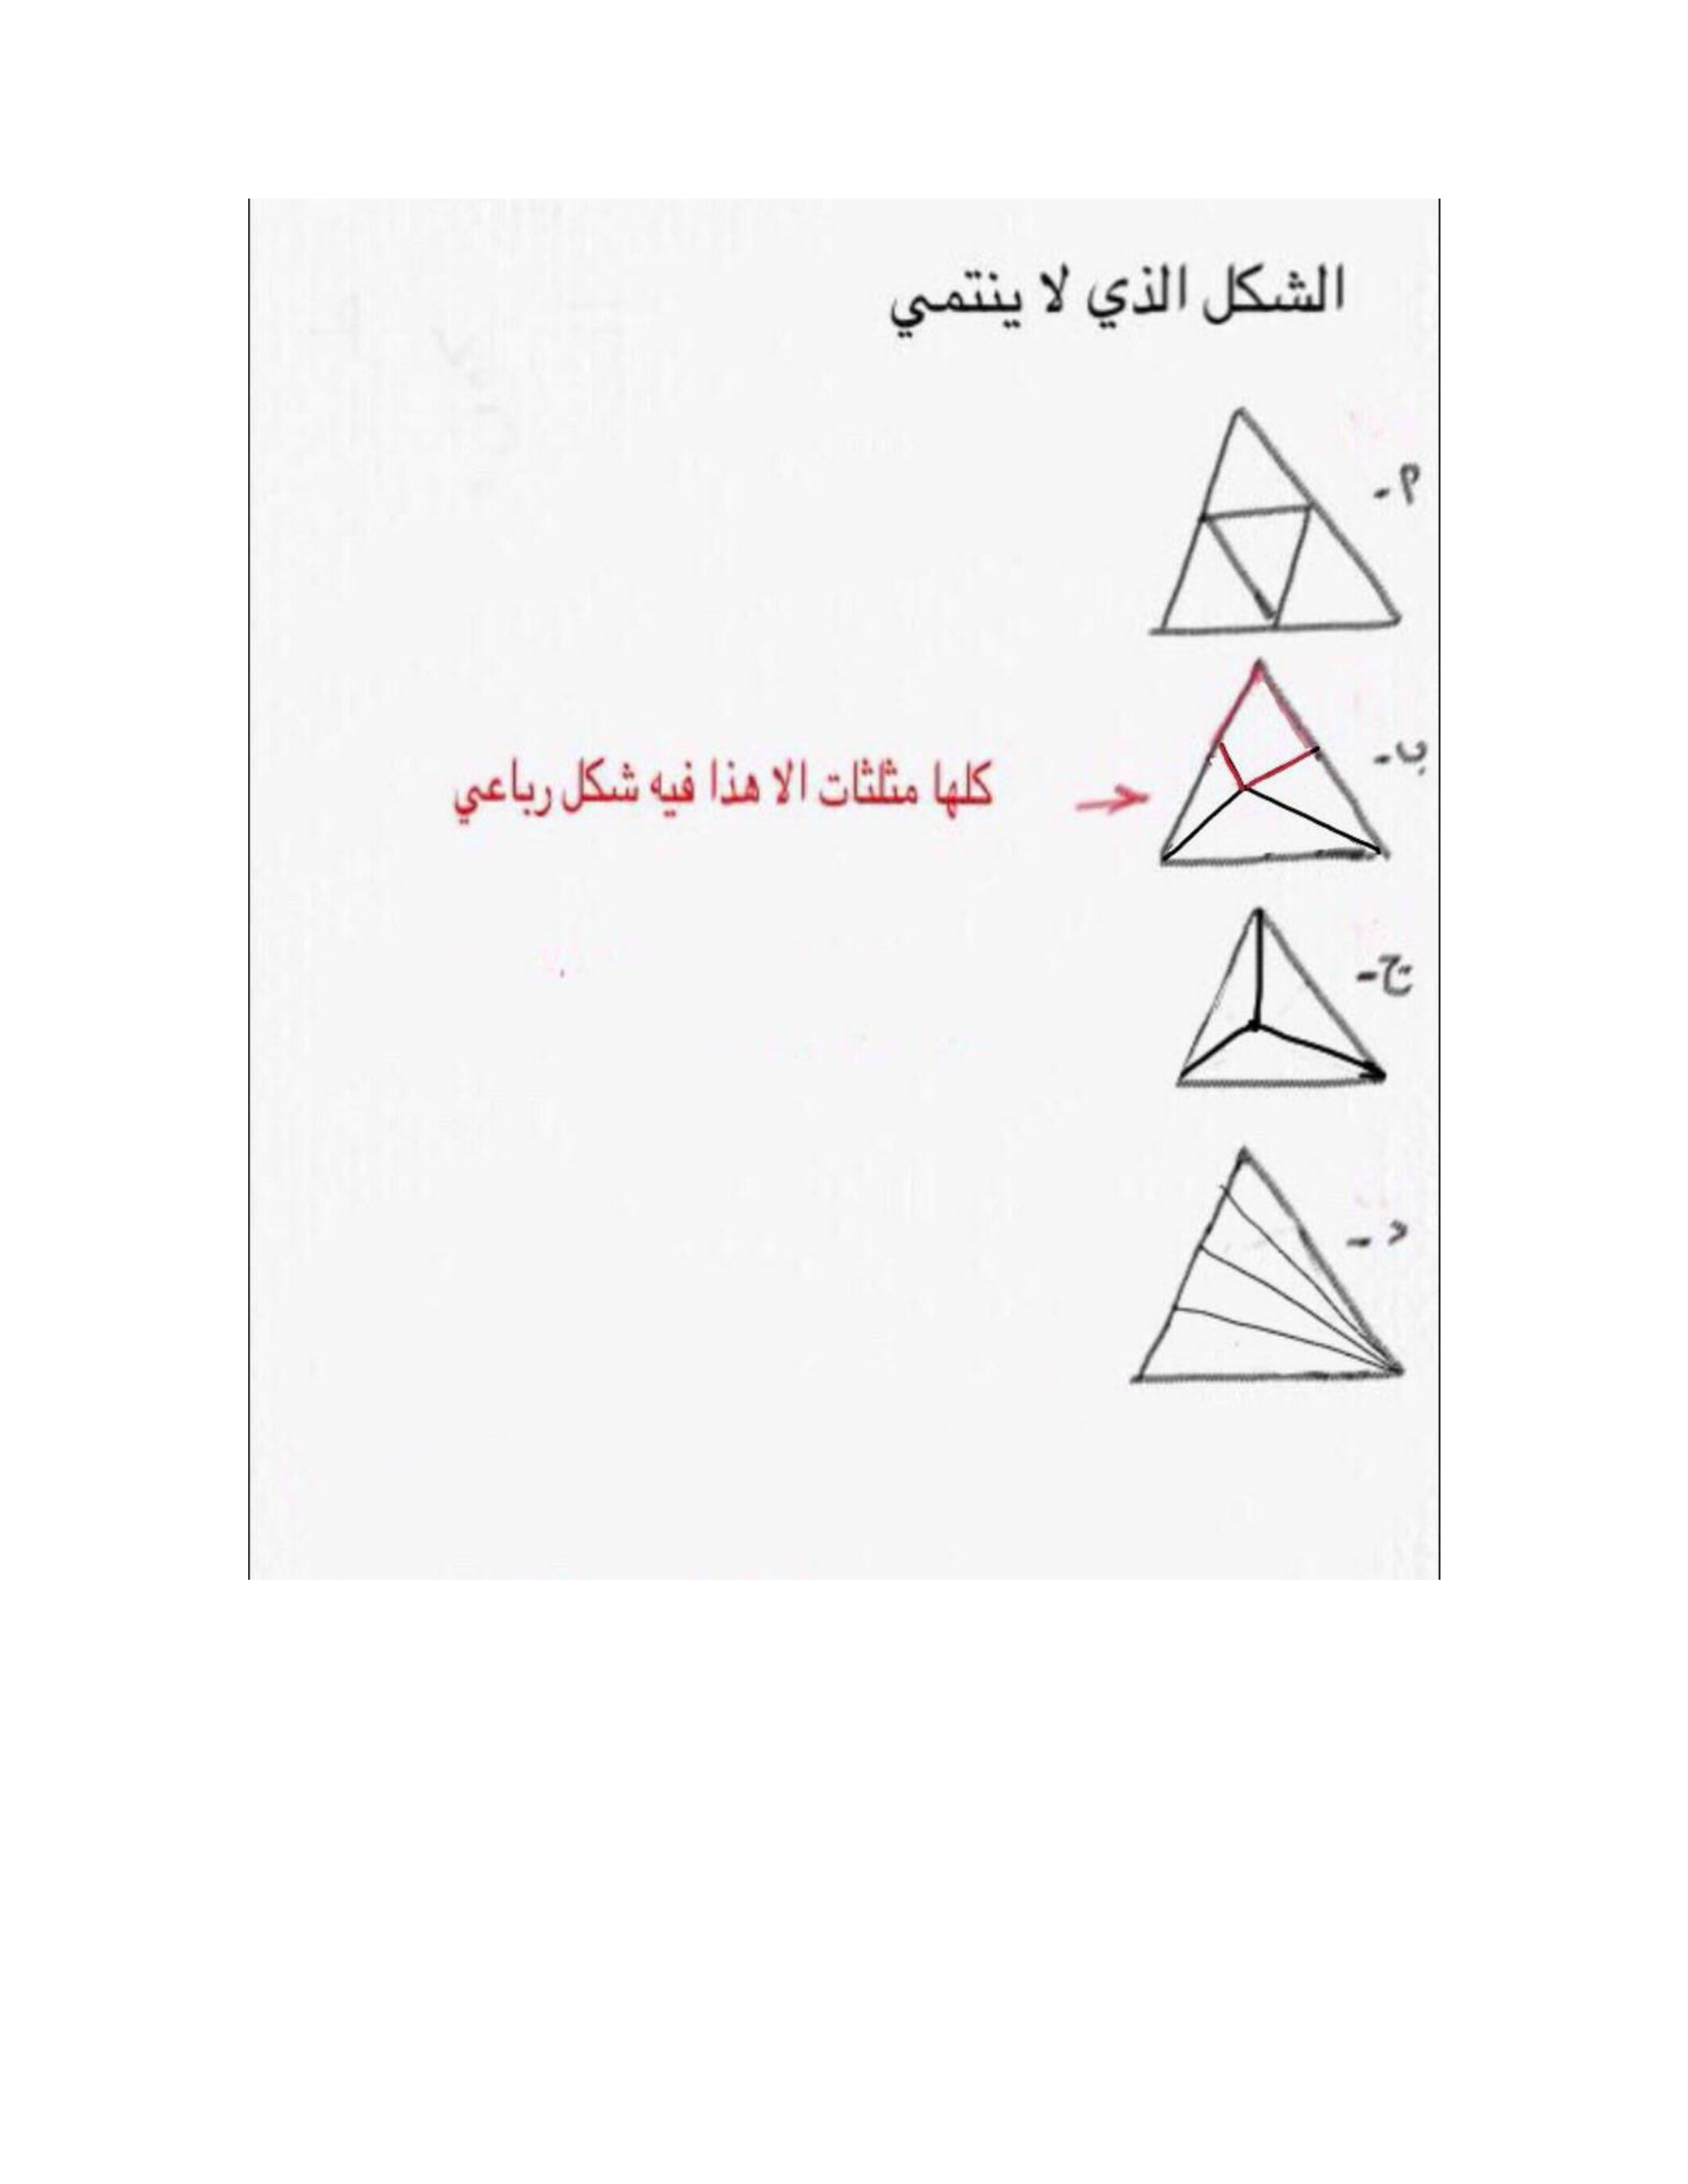 الشكل الذي لا ينتمي
أ-
ب-
كلها مثلثات الا هذا فيه شكل رباعي
ج-
د-